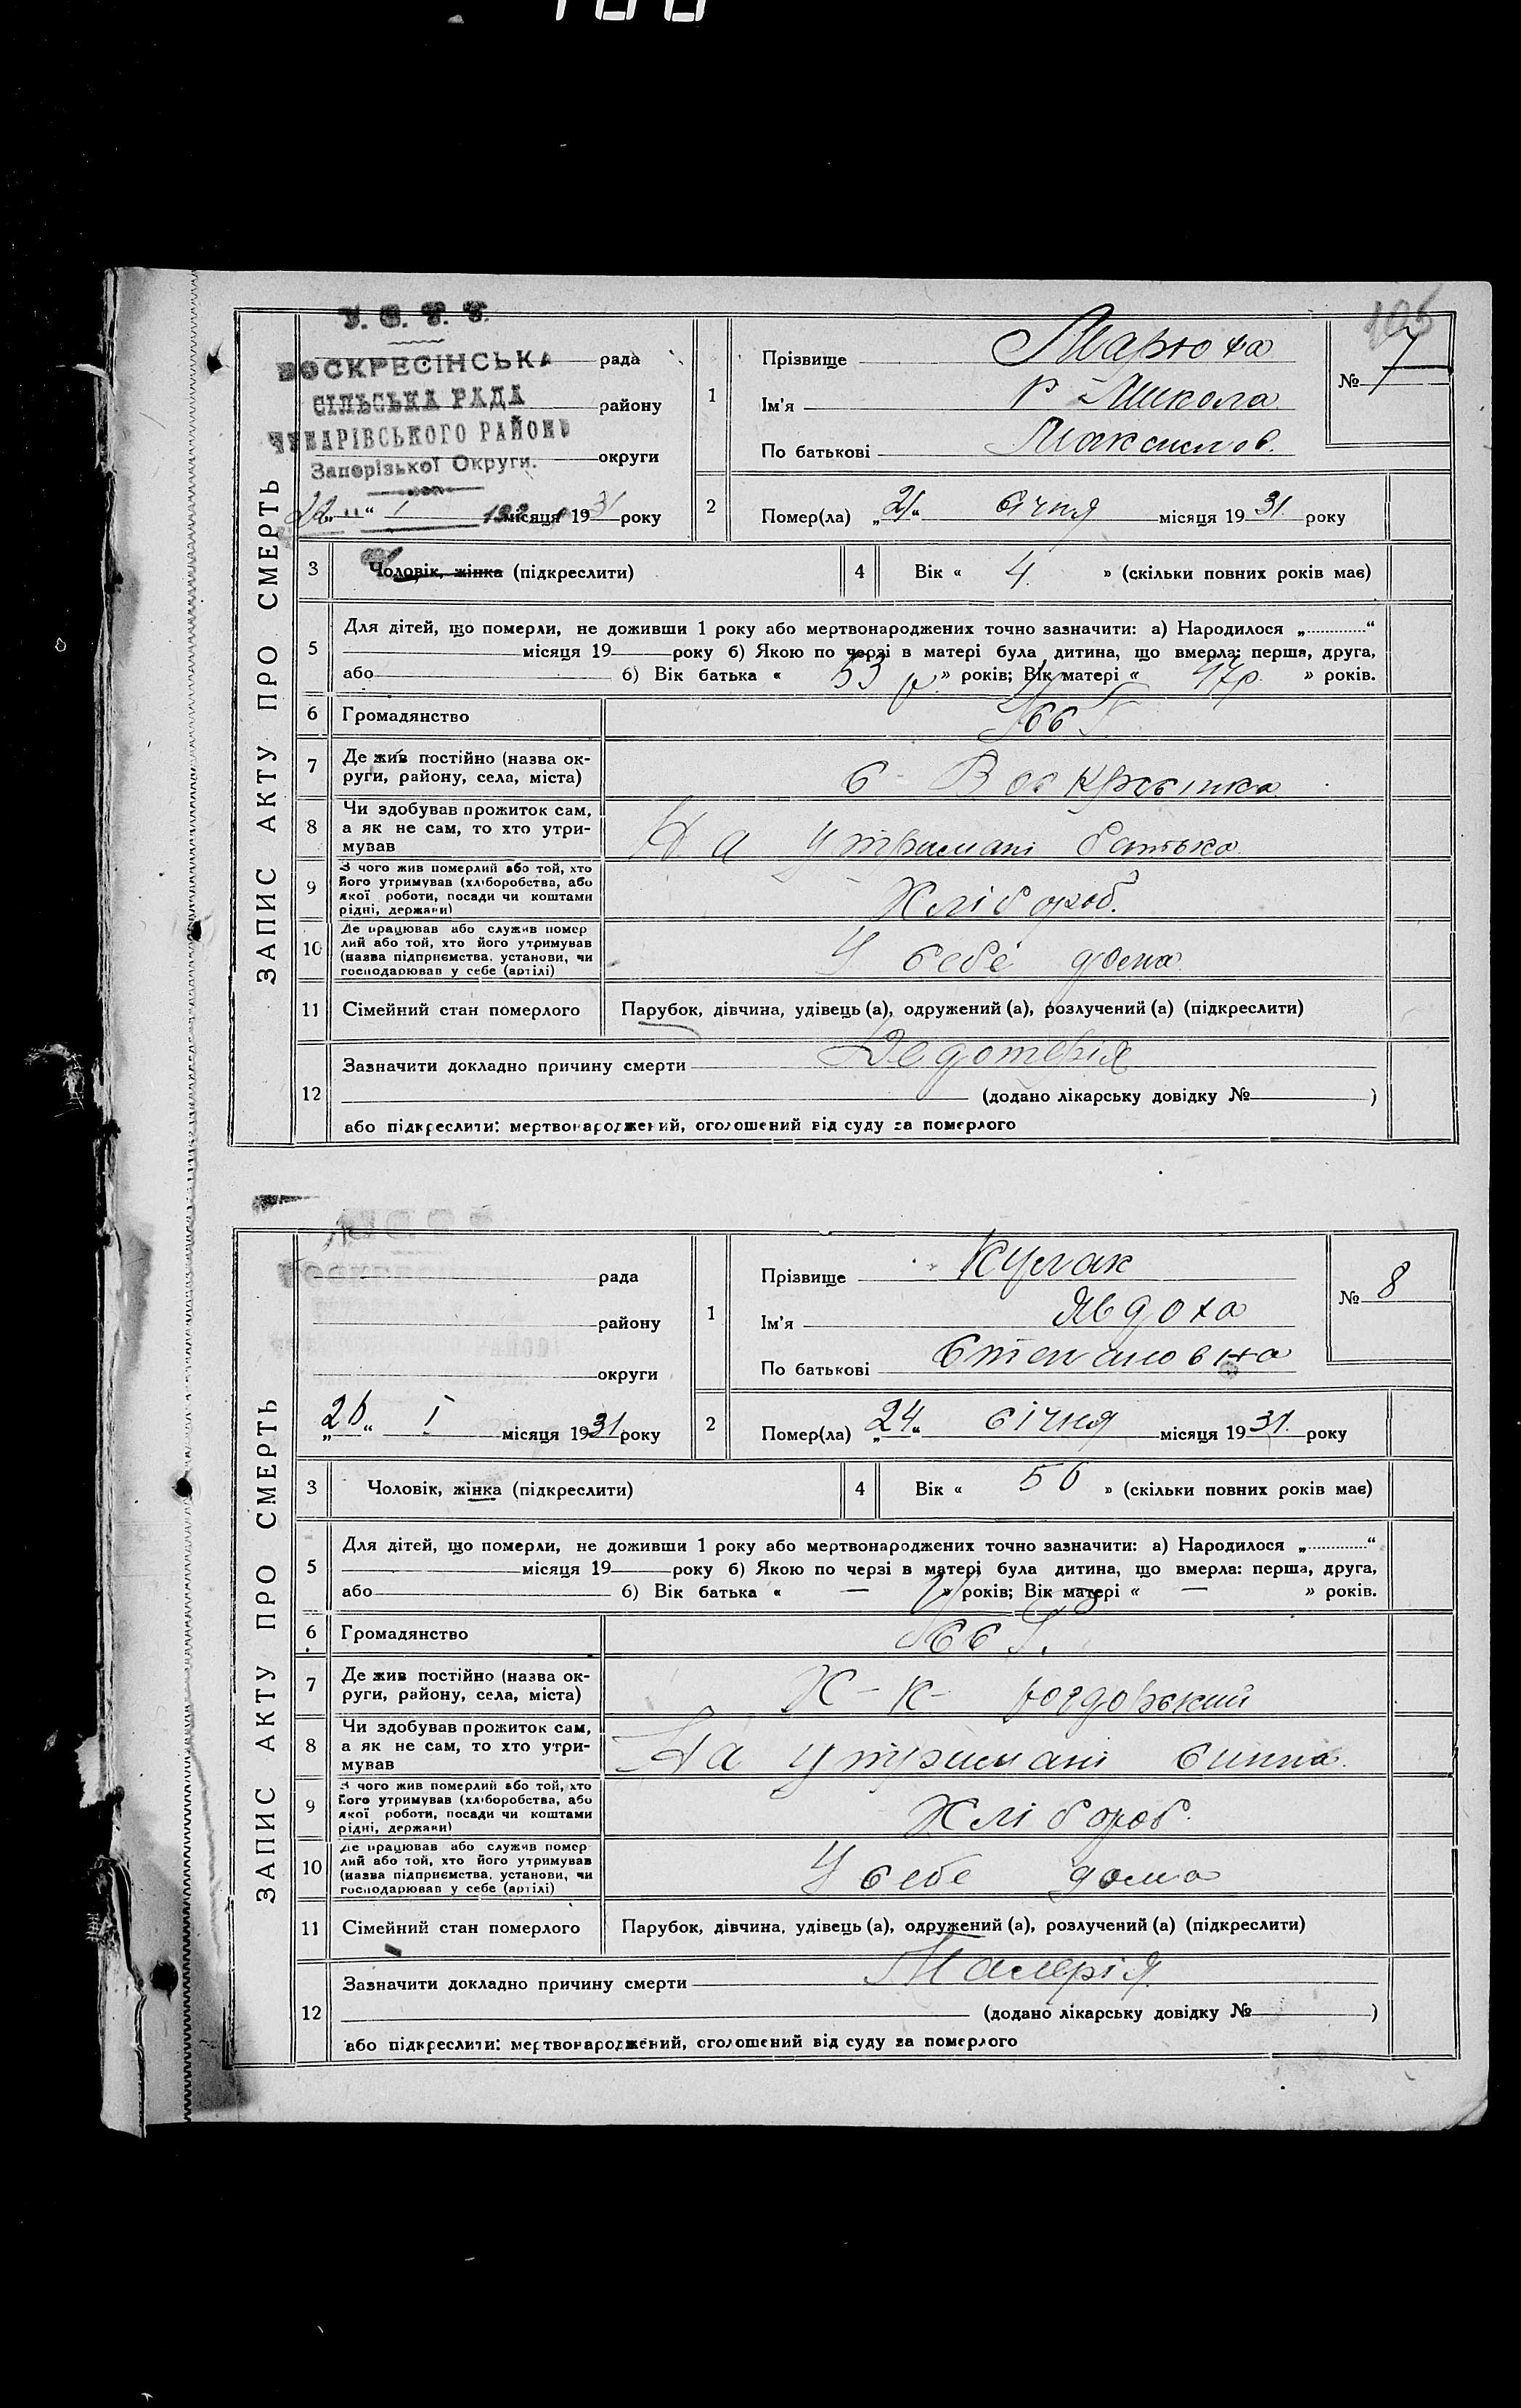 106
У. С. Р. Р.
ВОСКРЕСІНСЬКА рада
СІЛЬСЬКА РАДА району
ЧУБАРІВСЬКОГО РАЙОНУ
Запорізької Округи. округи
22 „ “ I місяця 1931 року
ЗАПИС АКТУ ПРО СМЕРТЬ
1 Прізвище Марюха
Ім'я Микола
По батькові Максимов.
№ 7
2 Помер(ла) „21“ січня місяця 1931 року
3 Чоловік, жінка (підкреслити)
4 Вік « 4 » (скільки повних років має)
5 Для дітей, що померли, не доживши 1 року або мертвонароджених точно зазначити: а) Народилося „ “
місяця 19 року б) Якою по черзі в матері була дитина, що вмерла: перша, друга,
або б) Вік батька « 53 р. » років; Вік матері « 47р. » років.
6 Громадянство
7 Де жив постійно (назва ок-
руги, району, села, міста) с Воскресінка
8 Чи здобував прожиток сам,
а як не сам, то хто утри-
мував На утримані батька
9 З чого жив померлий або той, хто
його утримував (хліборобства, або
якої роботи, посади чи коштами
рідні, держави) Хлібороб.
10 Де працював або служив помер
лий або той, хто його утримував
(назва підприємства, установи, чи
господарював у себе (артілі) У себе дома
11 Сімейний стан померлого Парубок, дівчина, удівець (а), одружений (а), розлучений (а) (підкреслити)
12 Зазначити докладно причину смерти
(додано лікарську довідку № )
або підкреслити: мертвонароджений, оголошений від суду за померлого
ЗАПИС АКТУ ПРО СМЕРТЬ
рада
району
округи
„26“ I місяця 1931 року
1 Прізвище Кулак
Ім'я Явдоха
По батькові Степановна
№ 8
2 Помер(ла) „24“ січня місяця 1931 року
3 Чоловік, жінка (підкреслити)
4 Вік « 56 » (скільки повних років має)
5 Для дітей, що померли, не доживши 1 року або мертвонароджених точно зазначити: а) Народилося „ “
місяця 19 року б) Якою по черзі в матері була дитина, що вмерла: перша, друга,
або б) Вік батька « — » років; Вік матері « — » років.
6 Громадянство
7 Де жив постійно (назва ок-
руги, району, села, міста) Х-к
8 Чи здобував прожиток сам,
а як не сам, то хто утри-
мував На утримані
9 З чого жив померлий або той, хто
його утримував (хліборобства, або
якої роботи, посади чи коштами
рідні, держави) Хлібороб.
10 Де працював або служив помер
лий або той, хто його утримував
(назва підприємства, установи, чи
господарював у себе (артілі) У себе дома
11 Сімейний стан померлого Парубок, дівчина, удівець (а), одружений (а), розлучений (а) (підкреслити)
12 Зазначити докладно причину смерти Малерія
(додано лікарську довідку № )
або підкреслити: мертвонароджений, оголошений від суду за померлого